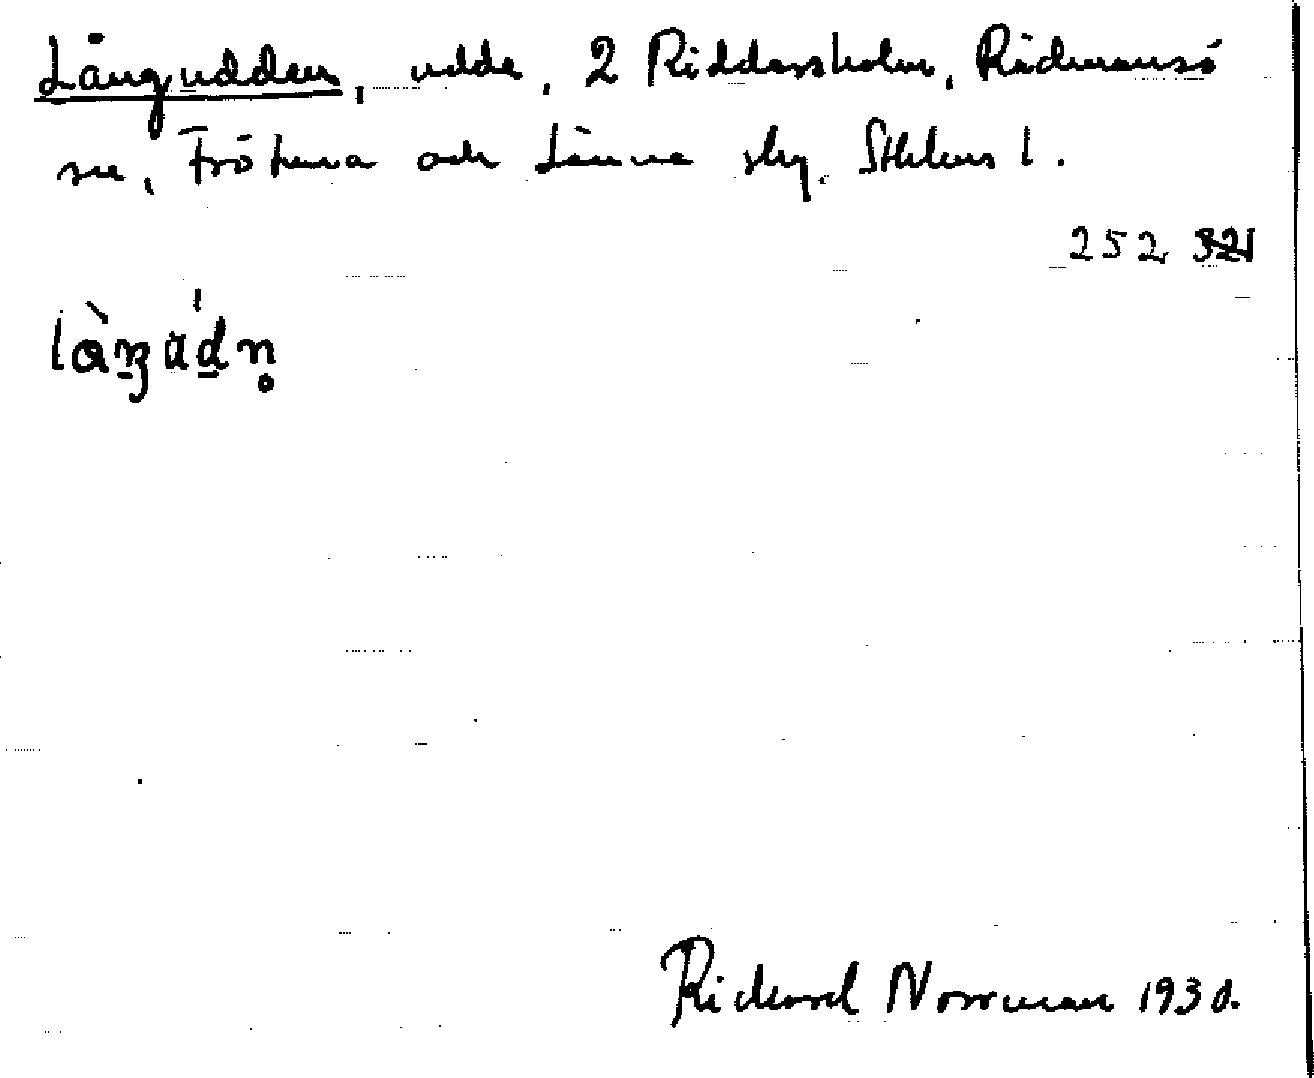 Långudden, udde, 2 Riddersholm, Rådmansö
sn, Frötuna och Länna skg. Sthlms l.
252 321
Richard Norrman 1930.